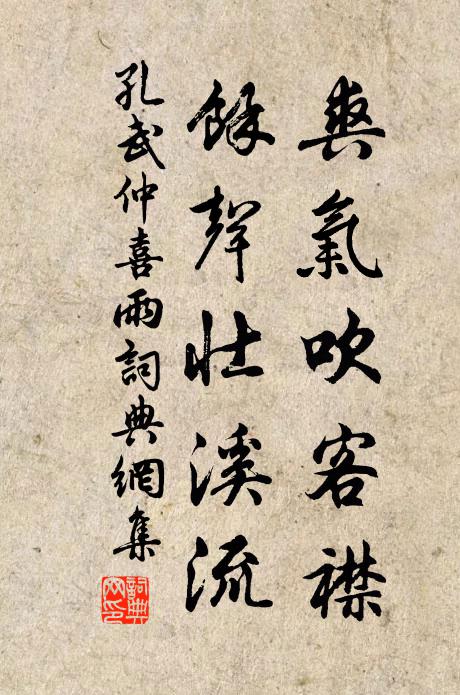 爽氣吹客襟
餘聲壯溪流
孔武仲喜雨詞典網集
詞典
網印